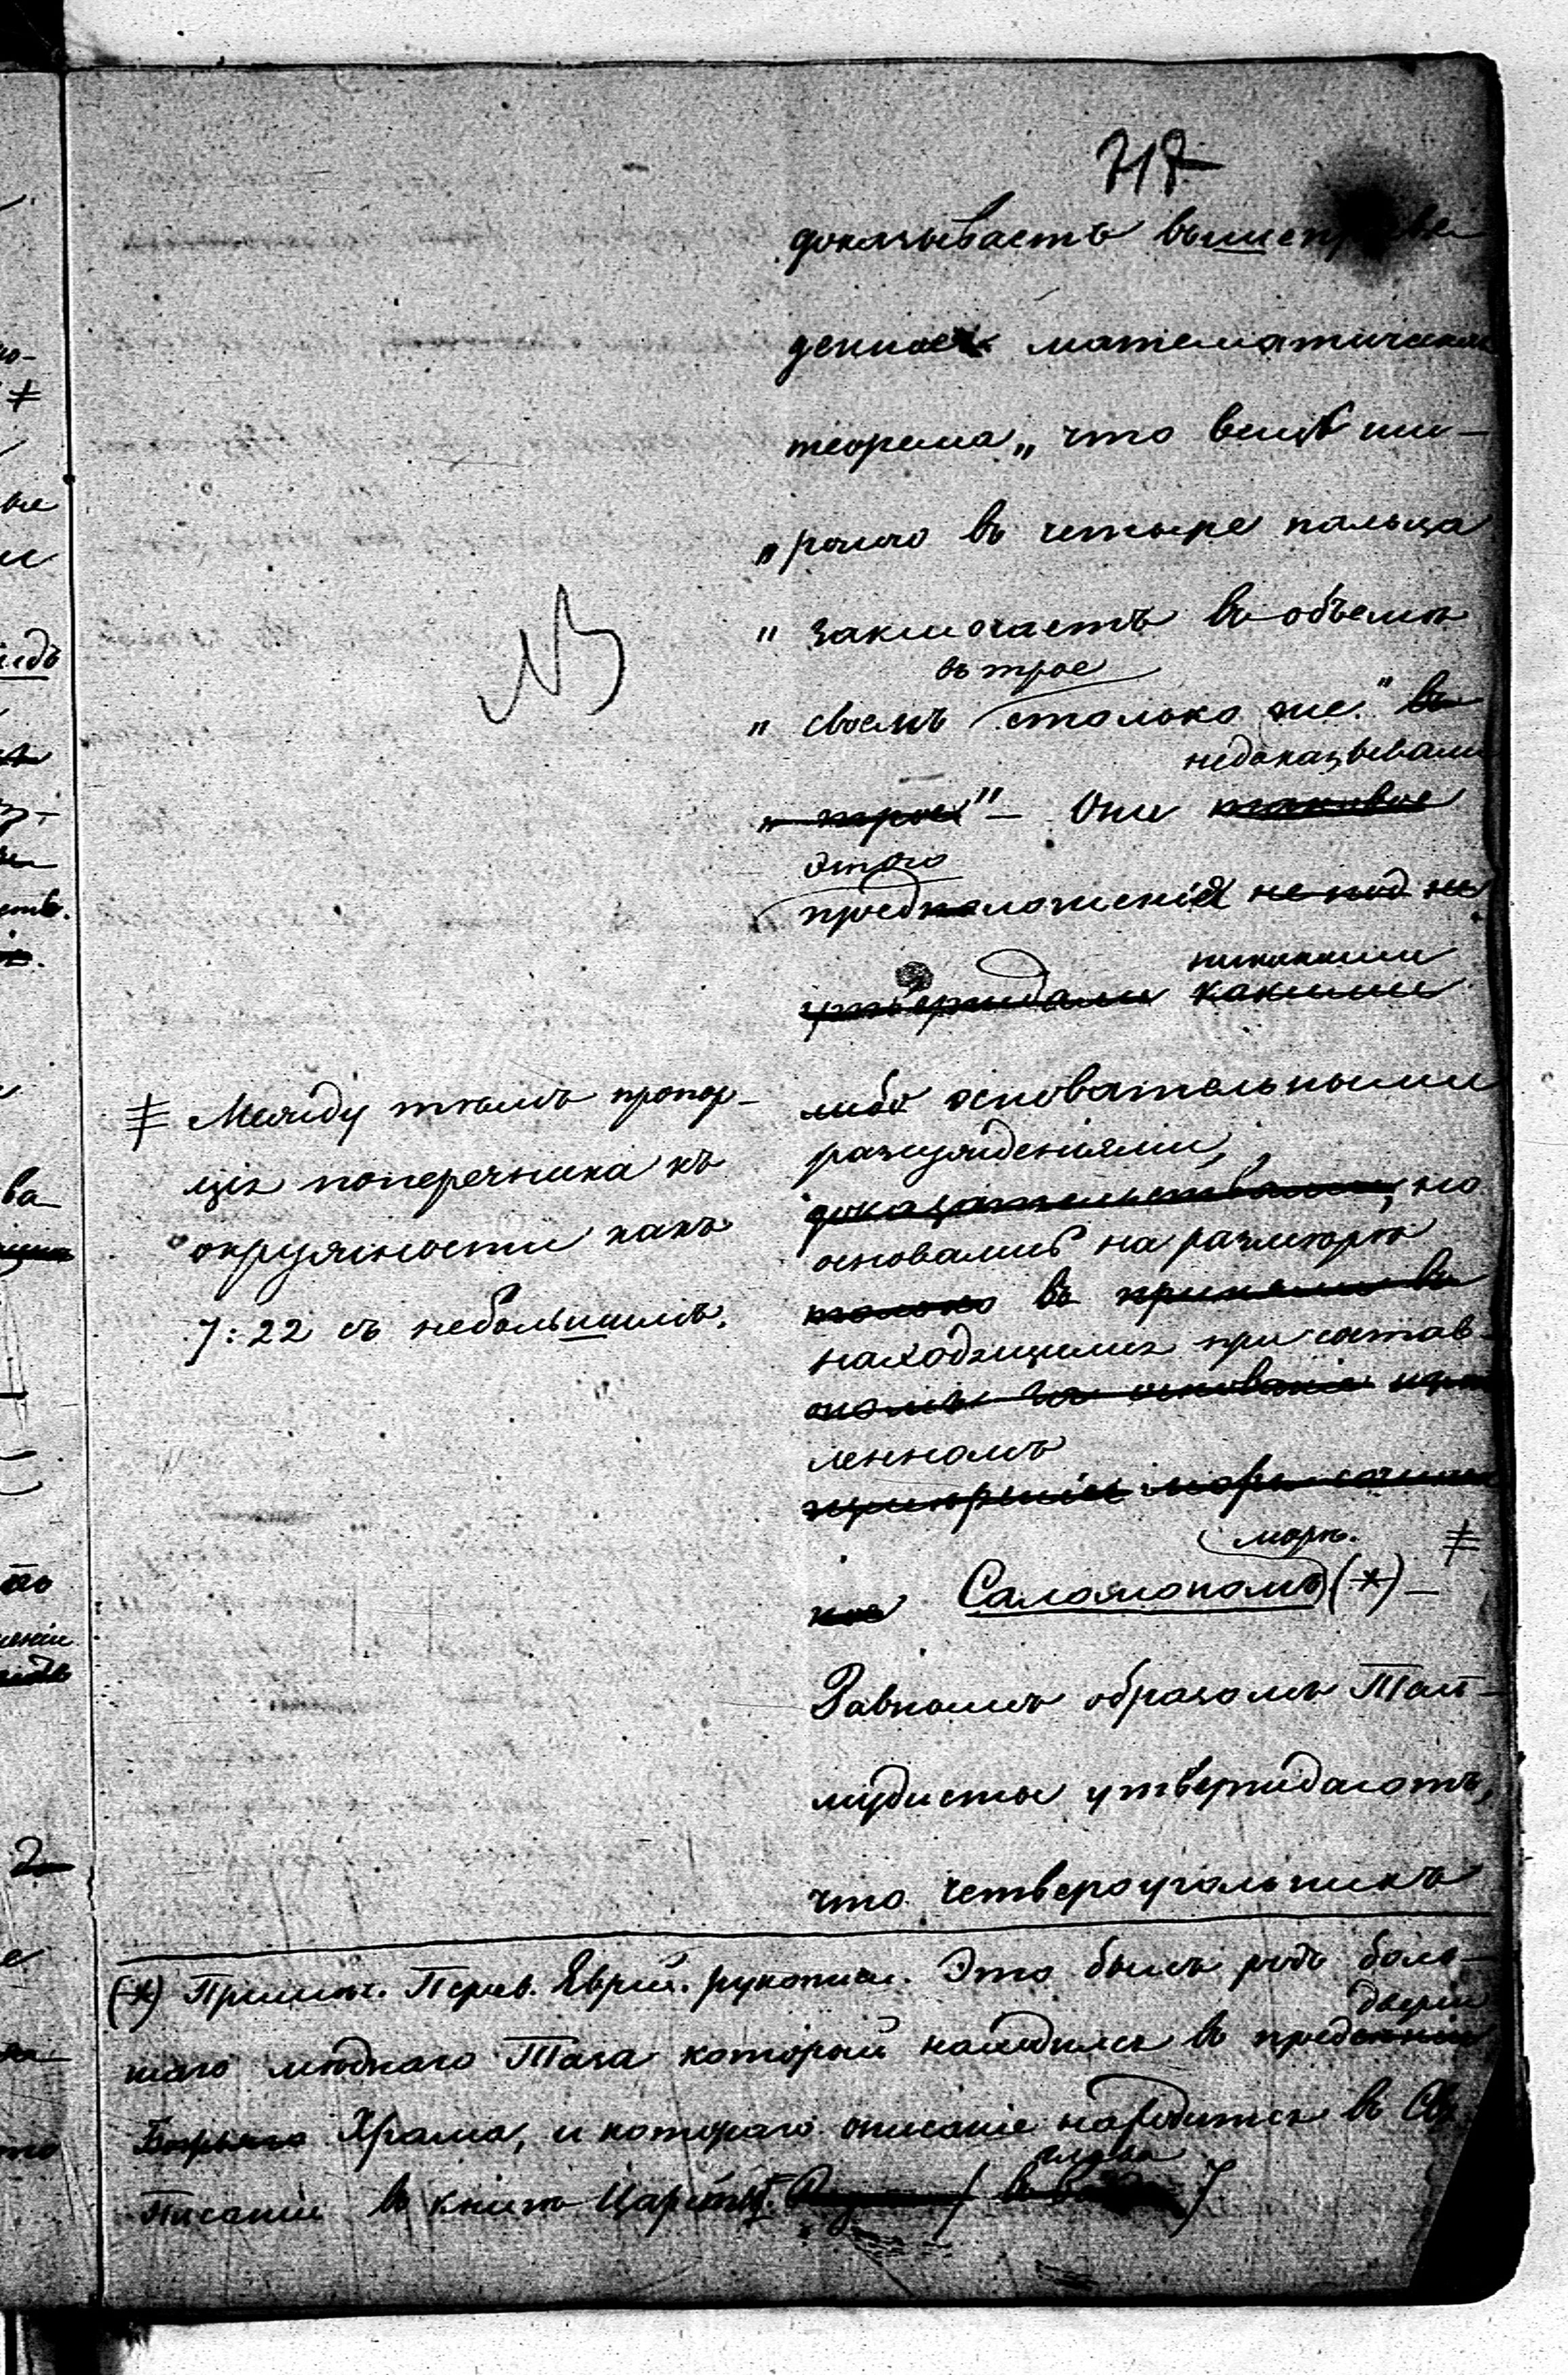 доказываетъ вышеприве
денная математическая
теорема „что вещь ши-
„рокою въ четыре пальца
„ заключаетъ въ объемѣ
въ трое
„ своемъ столько же." въ
недоказывали
„ трое" — Они таковое
этого
предположенія не под не
никакими
утверждали какими
либо основательными
разсужденіями,
доказательствами, но
основались на размѣрѣ
только въ приняли въ
находящимся при состав-
ленномъ
море
море. ≠
ное Саломономъ (*) —
Равномъ образомъ Тал-
мудисты утверждаютъ,
что четвероугольникъ
NB
≠ Между тѣмъ пропор-
ція поперечника къ
окружности какъ
7:22 съ небольшимъ.
(*) Примѣч. Перев. Еврей. рукописи. Это былъ родъ боль-
дверіи
шаго мѣднаго Таза который находился въ пред
Храма, и котораго описаніе находится въ Св.
глава
Писаніи въ книгѣ Царствъ